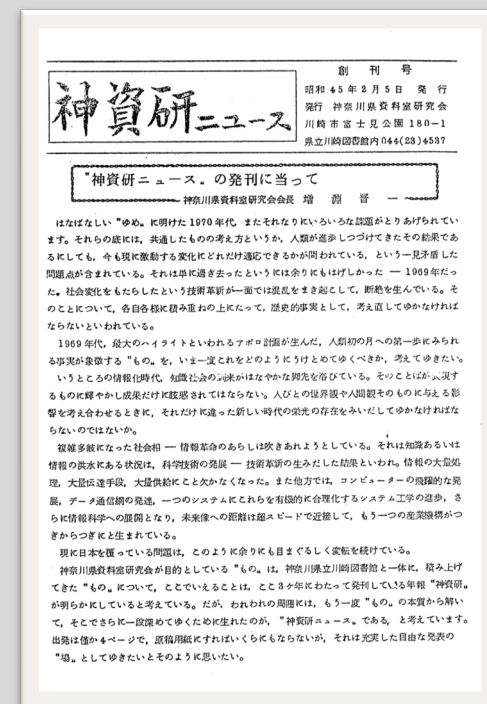 神資研ニュース
創刊号
昭和45年2月5日 発行
発行 神奈川県資料室研究会
川崎市富士見公園180-1
県立川崎図書館内044(23)4537
"神資研ニュース„の発刊に当って
神奈川県資料室研究会会長 増淵晋一
はなばなしい"ゆめ„に明けた1970年代,またそれなりにいろいろな課題がとりあげられてい
ます。それらの底には,共通したものの考え方というか,人類が進歩しつづけてきたその結果であ
るにしても,今も現に激動する変化にどれだけ適応できるかが問われている,という一見矛盾した
問題点が含まれている。それは単に過ぎ去ったというには余りにもはげしかった ― 1969年だっ
た。社会変化をもたらしたという技術革新が一面では混乱をまき起こして,断絶を生んでいる。そ
のことについて,各自各様に積み重ねの上にたって,歴史的事実として,考え直してゆかなければ
ならないといわれている。
1969年代,最大のハイライトといわれるアポロ計画が生んだ,人類初の月への第一歩にみられ
る事実が象徴する"もの„を,いま一度これをどのようにうけとめてゆくべきか,考えてゆきたい。
いうところの情報化時代,知識社会の到来がはなやかな脚光を浴びている。そのことばが表現す
るものに輝やかし成果だけに眩惑されてはならない。人びとの世界観や人間観そのものに与える影
響を考え合わせるときに,それだけに違った新しい時代の栄光の存在をみいだしてゆかなければな
らないのではないか。
複雑多岐になった社会相 ― 情報革命のあらしは吹きあれようとしている。それは知識あるいは
情報の洪水にある状況は,科学技術の発展 ― 技術革新の生みだした結果といわれ。情報の大量処
理,大量伝達手段,大量供給にこと欠かなくなった。また他方では,コンピューターの飛躍的な発
展,データ通信網の発達,一つのシステムにこれらを有機的に合理化するシステム工学の進歩,さ
らに情報科学への展開となり,未来像への距離は超スピードで近接して,もう一つの産業機構がつ
ぎからつぎにと生まれている。
現に日本を覆っている問題は,このように余りにも目まぐるしく変転を続けている。
神奈川県資料室研究会が目的としている"もの„は,神奈川県立川崎図書館と一体に,積み上げ
てきた"もの„について,ここでいえることは,ここ3ケ年にわたって発刊している年報"神資研„
が明らかにしていると考えている。だが,われわれの周囲には,もう一度"もの„の本質から解い
て,そこでさらに一段深めてゆくために生れたのが,"神資研ニュース„である,と考えています。
出発は僅か4ページで,原稿用紙にすればいくらにもならないが,それは充実した自由な発表の
"場„としてゆきたいとそのように思いたい。